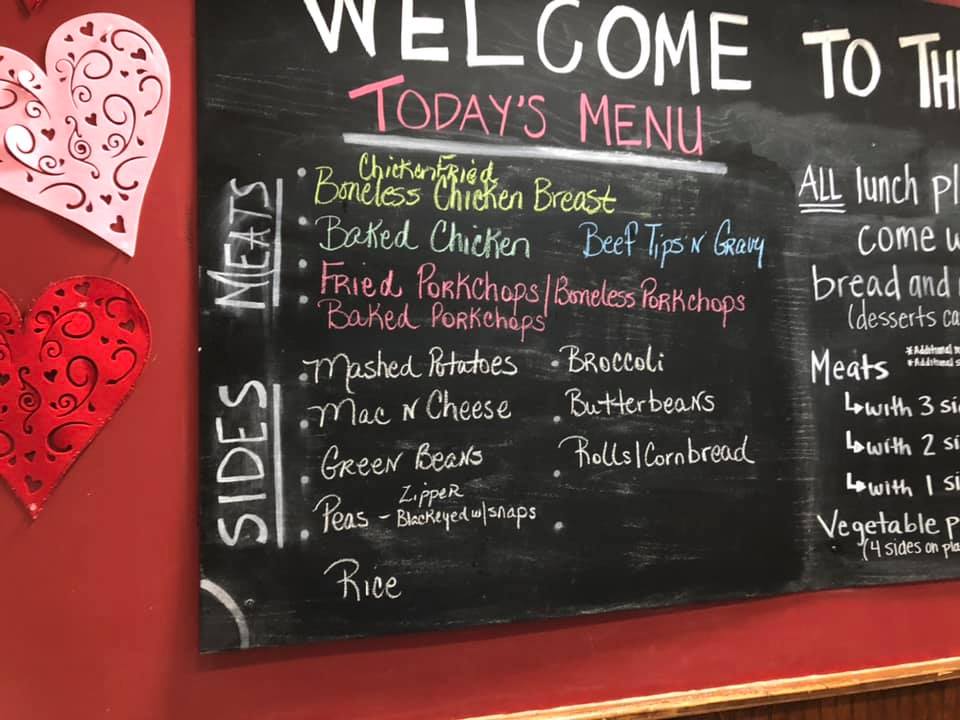 WELCOME TO TH
TODAY'S MENU
MEATS
Chicken Fried
Boneless Chicken Breast
Baked Chicken
Beef Tips N Gravy
Fried Porkchops/Boneless Porkchops
Baked Porkchops
SIDES
Mashed Potatoes
Mac N Cheese
Green Beans
Peas - Zipper
Blackeyed w/snaps
Rice
Broccoli
Butterbeans
Rolls/Cornbread
ALL lunch pl
come w
bread and
(desserts ca
Meats
*Additional
*Additional
with 3 si
with 2 si
with 1 si
Vegetable p
(4 sides on pla